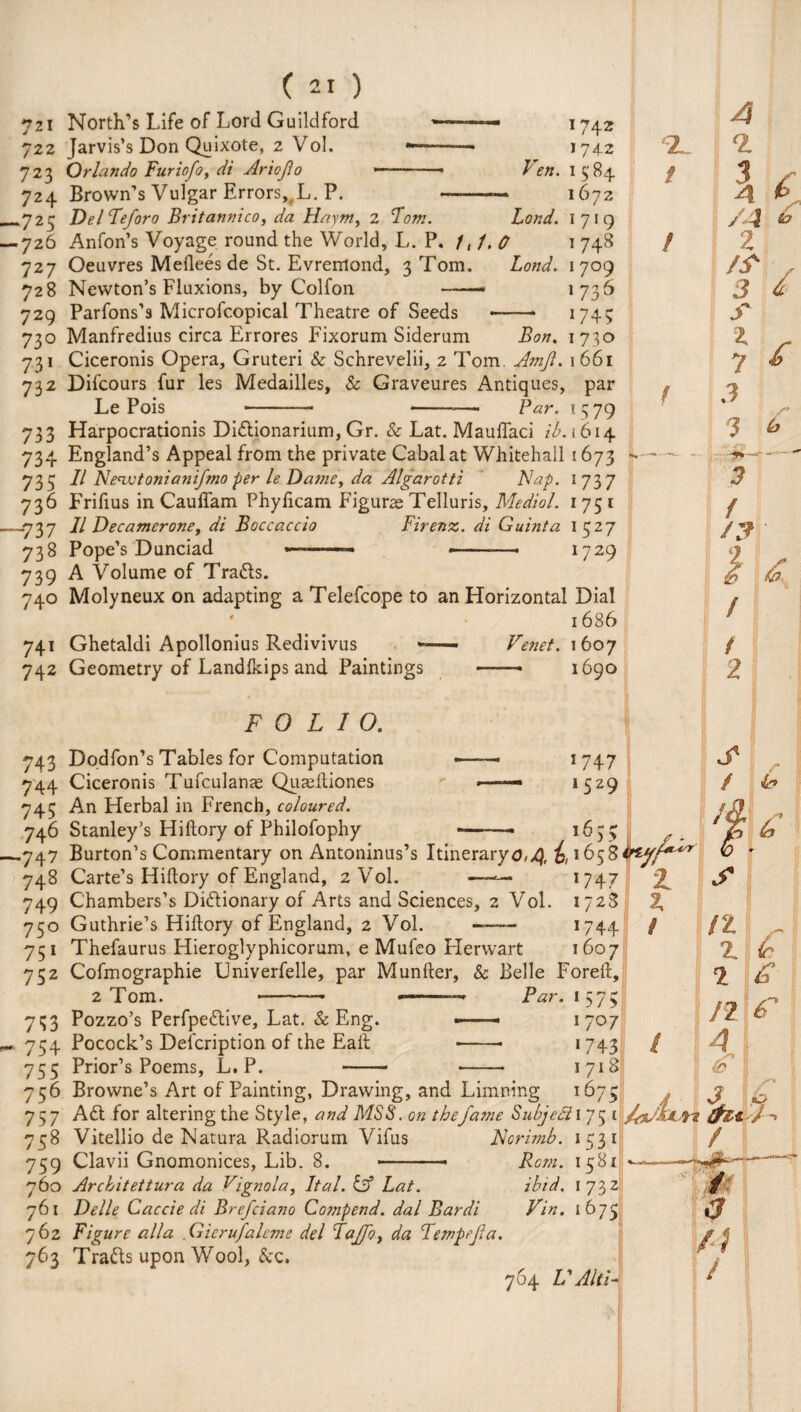 ( 21 )
721 North's Life of Lord Guildford —— 1742 4
722 Jarvis's Don Quixote, 2 Vol. —— 1742 2 2
723 Orlando Furioſo, di Arioſto —— Ven. 1584 1 3
724 Brown's Vulgar Errors, L. P. —— 1672 4 6
—725 Del Teſoro Britannico, da Haym, 2 Tom. Lond. 1719 14 6
—726 Anſon's Voyage round the World, L. P. 1,1.0 1748 1 2
727 Oeuvres Meſleés de St. Evremond, 3 Tom. Lond. 1709 15
728 Newton's Fluxions, by Colſon —— 1736 3 6
729 Parſons's Microſcopical Theatre of Seeds —— 1745 5
730 Manfredius circa Errores Fixorum Siderum Bon. 1730 2
731 Ciceronis Opera, Gruteri & Schrevelii, 2 Tom. Amſt. 1661 7 6
732 Diſcours ſur les Medailles, & Graveures Antiques, par
Le Pois —— —— Par. 1579 1 3
733 Harpocrationis Dictionarium, Gr. & Lat. Mauſſaci ib. 1614 3 6
734 England's Appeal from the private Cabal at Whitehall 1673
735 Il Newtonianiſmo per le Dame, da Algarotti Nap. 1737 3
736 Friſius in Cauſſam Phyſicam Figuræ Telluris, Mediol. 1751 1
—737 Il Decamerone, di Boccaccio Firenz. di Guinta 1527 13
738 Pope's Dunciad —— —— 1729 2
739 A Volume of Tracts. 6 6
740 Molyneux on adapting a Teleſcope to an Horizontal Dial
1686 1
741 Ghetaldi Apollonius Redivivus —— Venet. 1607 1
742 Geometry of Landſkips and Paintings —— 1690 2
FOLIO.
743 Dodſon's Tables for Computation —— 1747 5
744 Ciceronis Tuſculanæ Quæſtiones —— 1529 1 6
745 An Herbal in French, coloured.
746 Stanley's Hiſtory of Philoſophy —— 1655 6
—747 Burton's Commentary on Antoninus's Itinerary 0,4,6, 1658 6
748 Carte's Hiſtory of England, 2 Vol. —— 1747 2 5
749 Chambers's Dictionary of Arts and Sciences, 2 Vol. 1728 2
750 Guthrie's Hiſtory of England, 2 Vol. —— 1744 1 12
751 Theſaurus Hieroglyphicorum, e Muſeo Herwart 1607 2 6
752 Coſmographie Univerſelle, par Munſter, & Belle Foreſt,
2 Tom. —— —— Par. 1575 2 6
753 Pozzo's Perſpective, Lat. & Eng. —— 1707 12 6
— 754 Pocock's Deſcription of the Eaſt —— 1743 1 4
755 Prior's Poems, L. P. —— —— 1718 6
756 Browne's Art of Painting, Drawing, and Limning 1675 3 6
757 Act for altering the Style, and MSS. on the ſame Subject 1751
758 Vitellio de Natura Radiorum Viſus Norimb. 1531 1
759 Clavii Gnomonices, Lib. 8. —— Rom. 1581
760 Architettura da Vignola, Ital. & Lat. ibid. 1732
761 Delle Caccie di Breſciano Compend. dal Bardi Vin. 1675 3
762 Figure alla Gieruſaleme del Taſſo, da Tempeſta. 14
763 Tracts upon Wool, &c. 1
764 L'Alti-